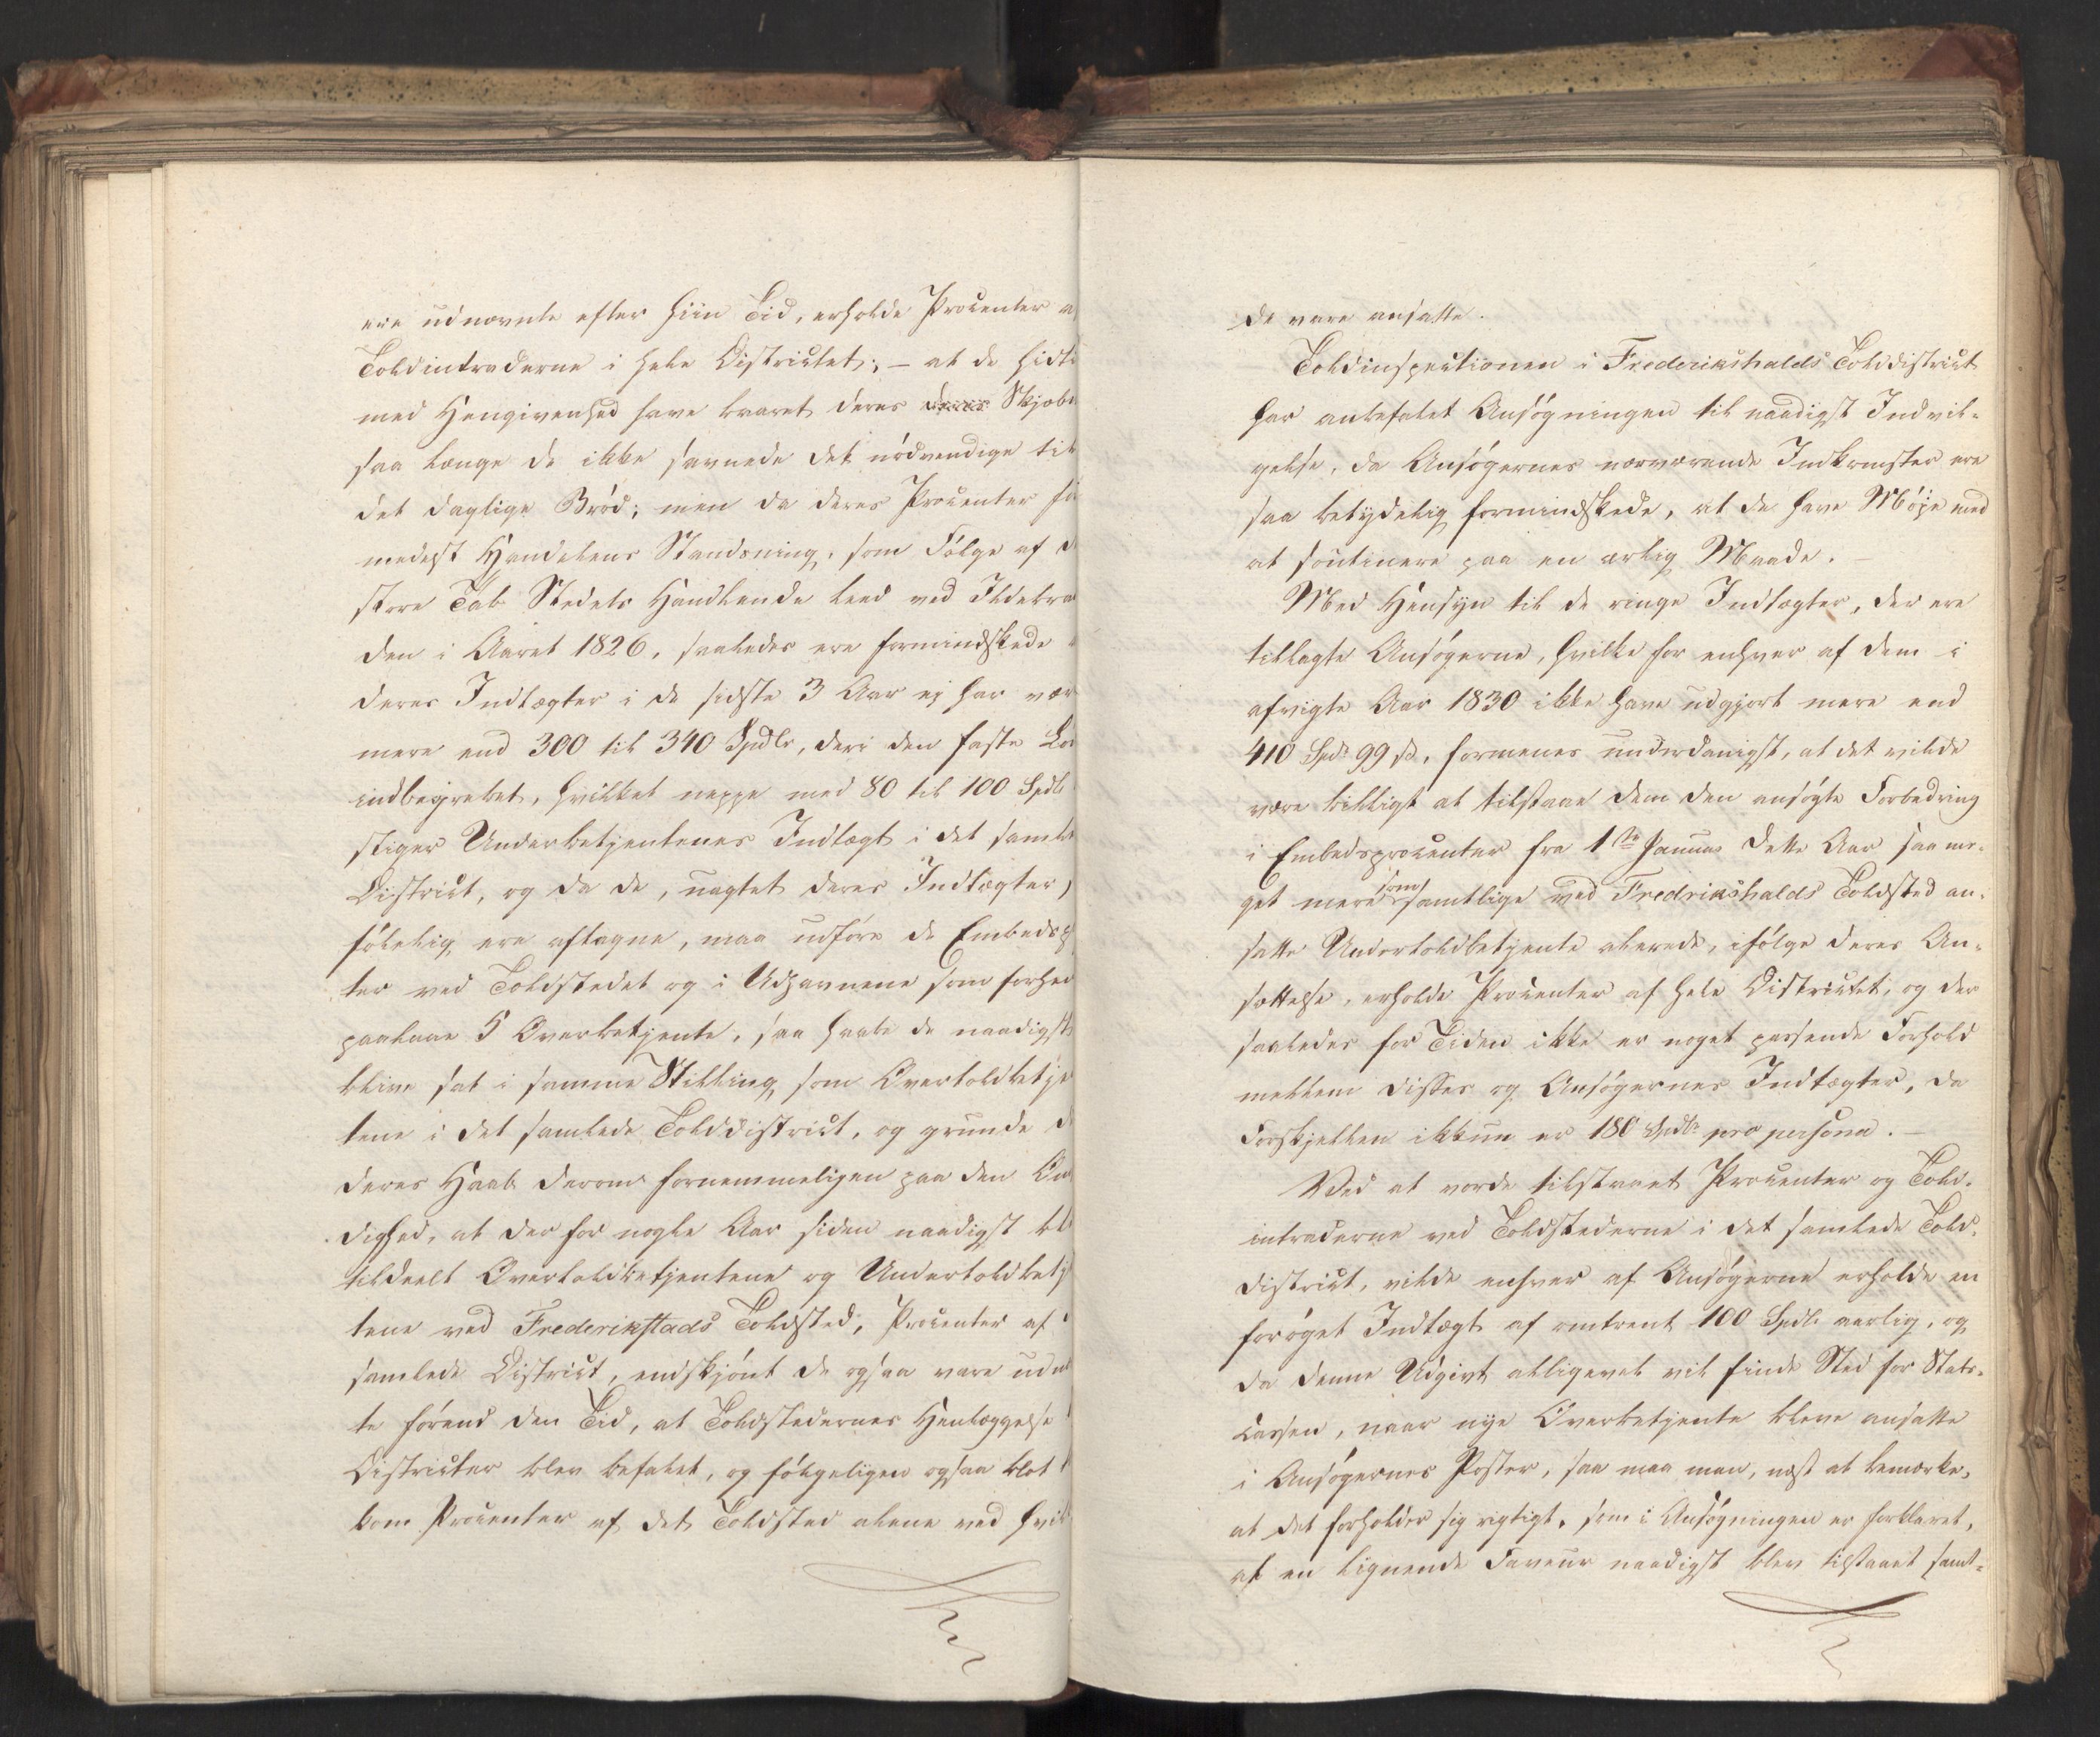 ere udnævnte efter hiin Tid, erholde Procenter a
Toldintraderne i hele Districtet; – at de hidti
med Hengivenhed have baaret deres Skjæbn
saa længe de ikke savnede det nødvendige til
det daglige Brød; men da deres Procenter for
medelst Handelens Standsning, som Følge af d
store Tab Stedets Handlende leed ved Ildebra
den i Aaret 1826, saaledes ere formindskede a
deres Indtægter i de sidste 3 Aar ej har vær
mere end 300 til 340 Spdlr, deri den faste Løn
indbegrebet, hvilket neppe med 80 til 100 Spdlr
stiger Underbetjentenes Indtægt i det samle
District, og da de, uagtet deres Indtægter,
følelig ere aftagne, maa udføre de Embedsp
ter ved Toldstedet og i Udhavnene som forhen
paalaae 5 Overbetjente, saa haabe de naadigst
blive sat i samme Stilling som Overtoldbetje
tene i det samlede Tolddistrict, og grunde d
deres Haab derom fornemmeligen paa den Om
dighed, at der for nogle Aar siden naadigst bl
tildeelt Overtoldbetjentene og Undertoldbetj
tene ved Frederikstads Toldsted, Procenter af d
samlede District, endskjønt de ogsaa vare udn
te førend den Tid, at Toldstedernes Henlæggelse
Districter blev befalet, og følgeligen ogsaa blot
kom Procenter af det Toldsted alene ved hvil
de vare ansatte.
Toldinspectionen i Frederikshalds Tolddistrict
har anbefalet Ansøgningen til naadigst Indvil-
gelse, da Ansøgernes nærværende Indkomster ere
saa betydelig formindskede, at de have Møje med
at soutinere paa en ærlig Maade.
Med Hensyn til de ringe Indtægter, der ere
tillagte Ansøgerne, hvilke for enhver af dem i
afvigte Aar 1830 ikke have udgjort mere end
410 Spdr 99 ß, formenes underdanigst, at det vilde
være billigt at tilstaae dem den ansøgte Forbedring
i Embedsprocenter fra 1ste Januar dette Aar saa me-
get mere som samtlige ved Fredrikshalds Toldsted an-
satte Undertoldbetjente allerede, ifølge deres An-
sættelse, erholde Procenter af hele Districtet, og der
saaledes for Tiden ikke er noget passende Forhold
mellem disses og Ansøgernes Indtægter, da
Forskjellen ikkun er 180 Spdlr pro persona. –
Ved at vorde tilstaaet Procenter og Told-
intraderne ved Toldstederne i det samlede Told-
district, vilde enhver af Ansøgerne erholde en
forøget Indtægt af omtrent 100 Spdlr aarlig, og
da denne Udgivt alligevel vil finde Sted for Stats-
cassen, naar nye Overbetjente bleve ansatte
i Ansøgernes Poster, saa maa man, næst at bemærke,
at det forholder sig rigtigt, som i Ansøgningen er forklaret,
at en lignende Faveur naadigst blev tilstaaet samt-